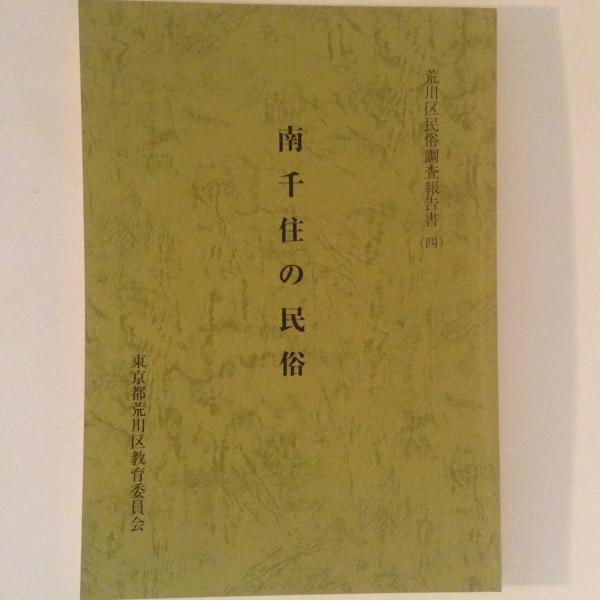 荒川区民俗調査報告書(四)
南千住の民俗
東京都荒川区教育委員会